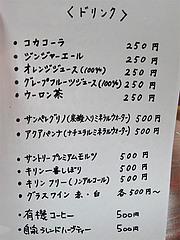 <ドリンク>
・コカコーラ 250円
・ジンジャーエール 250円
・オレンジジュース(100%) 250円
・グレープフルーツジュース(100%) 250円
・ウーロン茶 250円
・サンペレグリノ(炭酸入りミネラルウォーター) 500円
・アクアパンナ(ナチュラルミネラルウォーター) 500円
・サントリープレミアムモルツ 500円
・キリン一番しぼり 500円
・キリンフリー(ノンアルコール) 500円
・グラスワイン 赤・白 各500円〜
・有機コーヒー 500円
・自家ブレンドハーブティー 500円